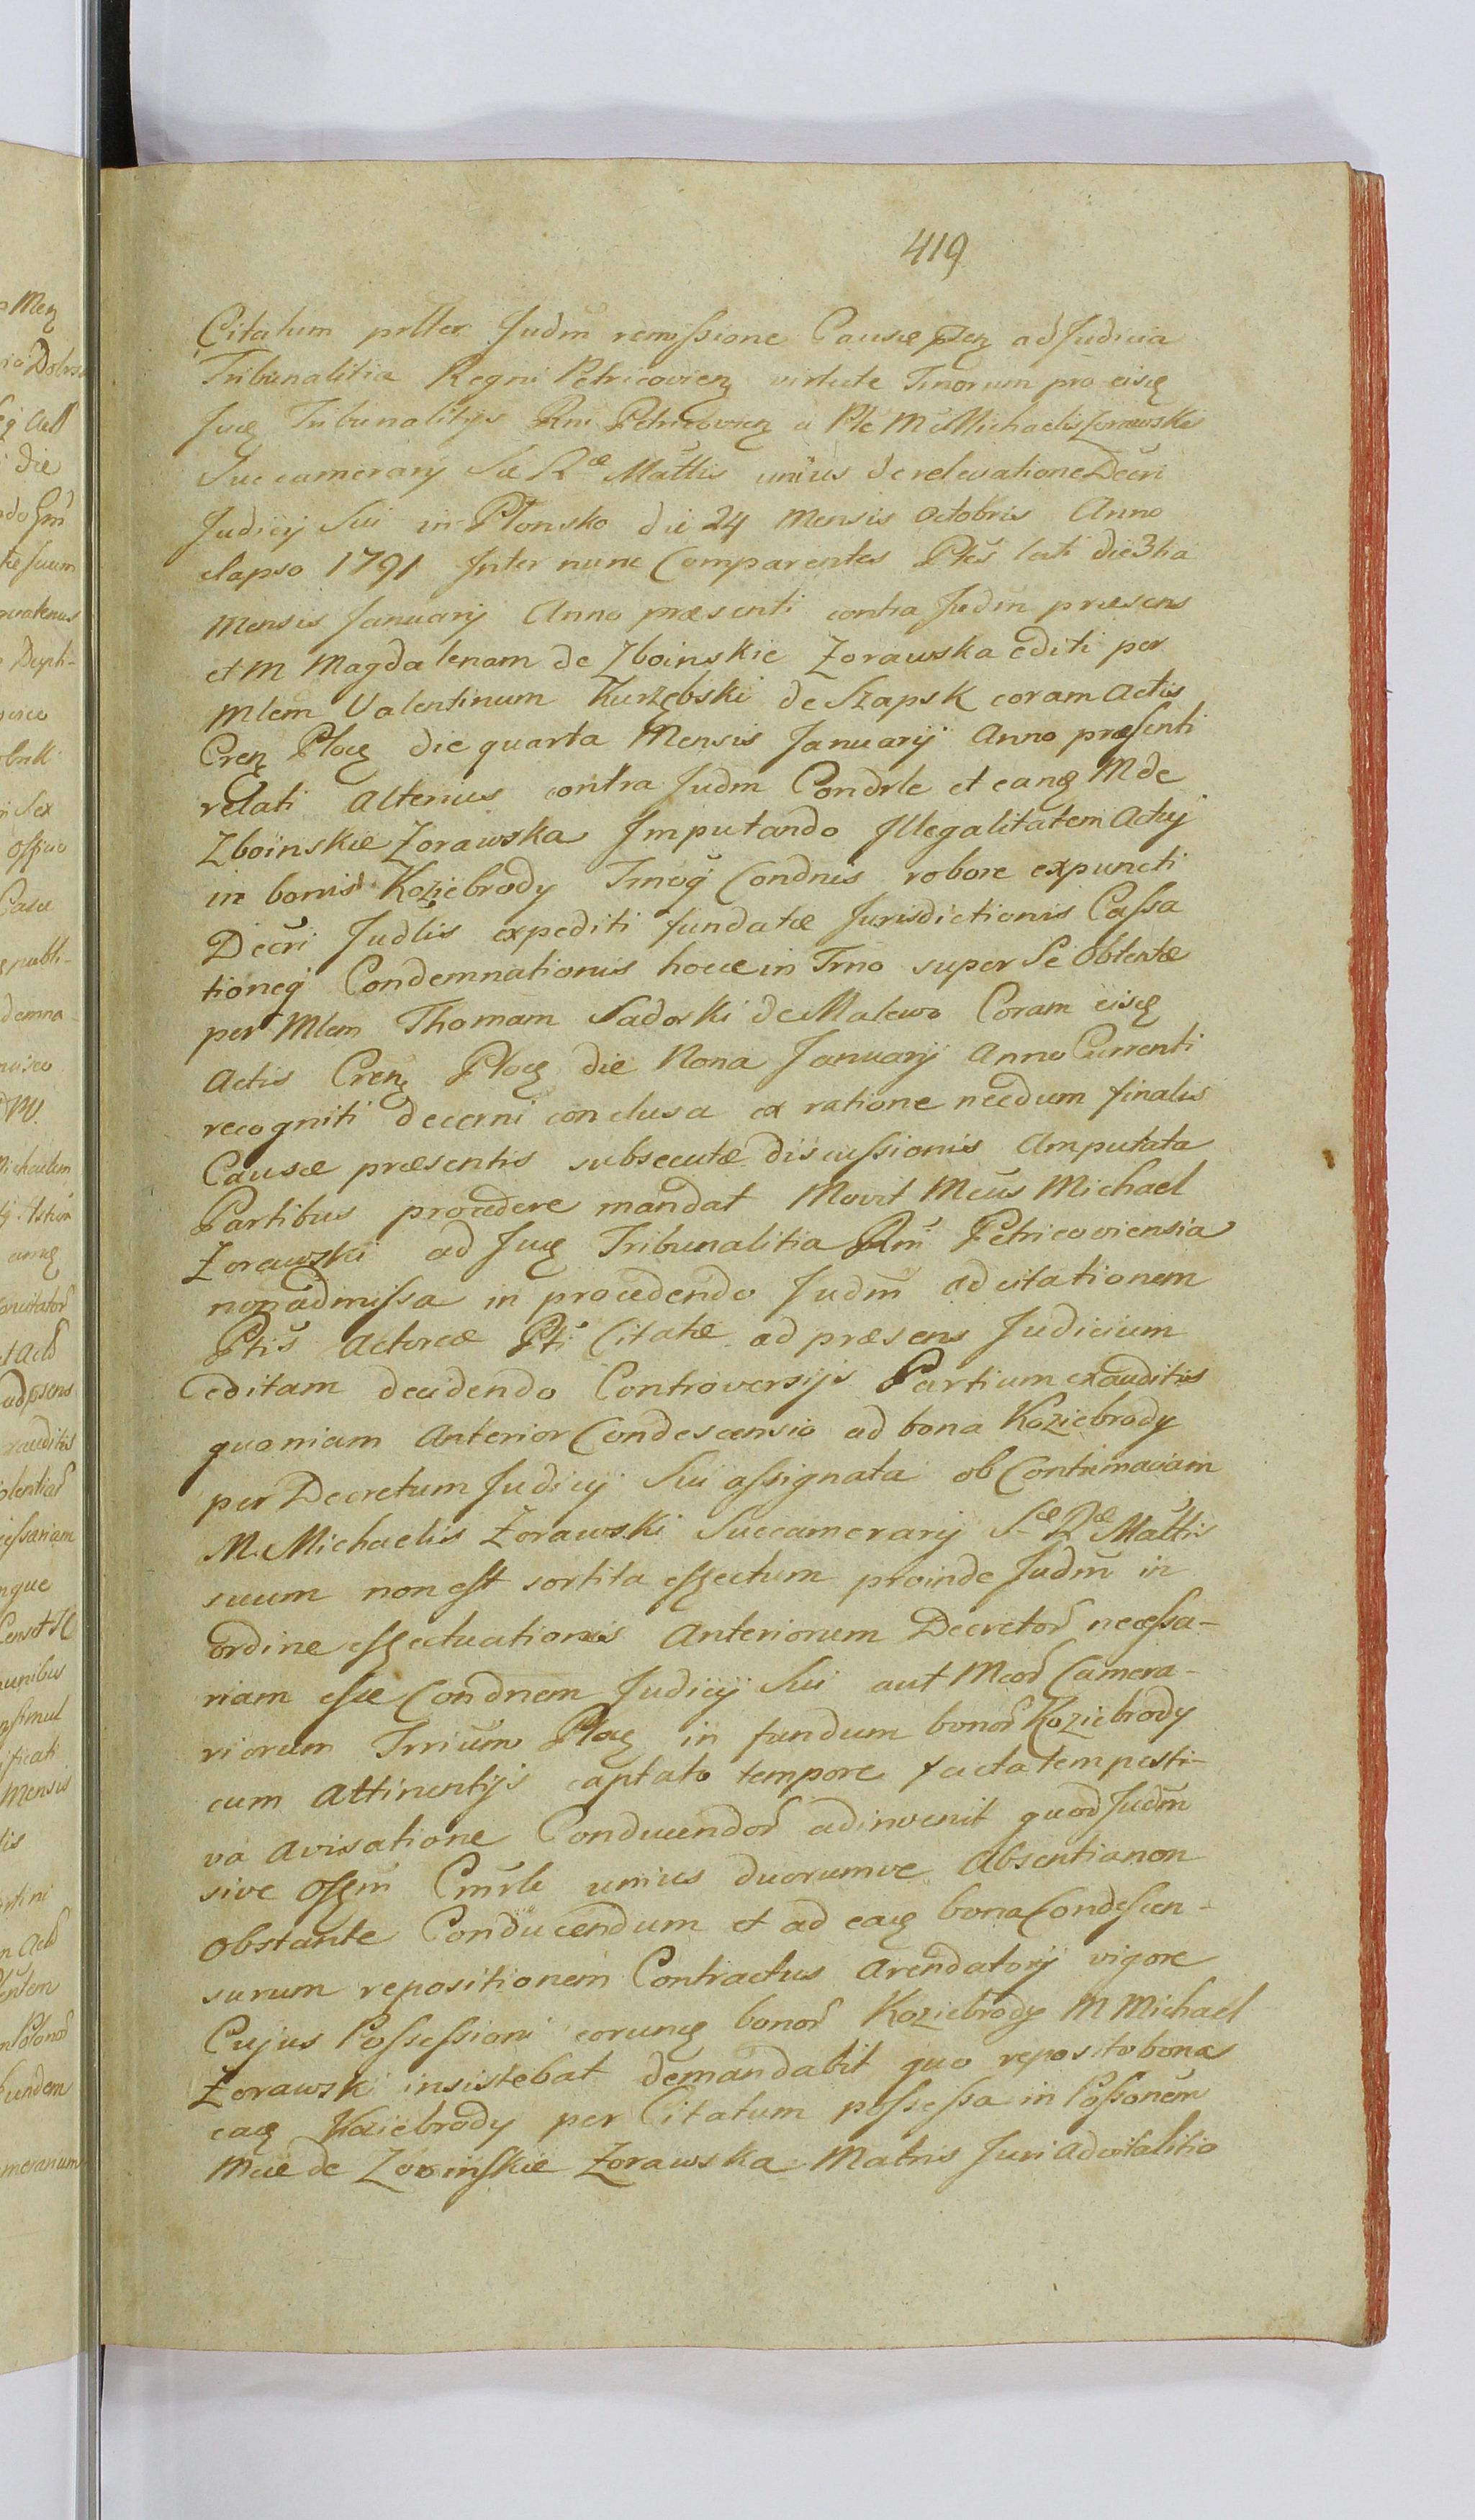 419
Citatum prtter Judm remissione Causæ pnz ad Judicia
Tribunalitia Regni Petricovienz virtute Tmorum pro eisq
Juq Tribunalitijs Rni Petricovienz a Pte M Michaelis Żorawski
Succamerarij Sæ Ræ Mattis unius de relevatione Decri
Judicij Sui in Płonsko die 24 Mensis Octobris Anno
elapso 1791 Inter nunc Comparentes Ptes lati die 3tia
Mensis Januarij Anno præsenti contra Judm præsens
et M Magdalenam de Zboinskie Zorawska editi per
Mlem Valentinum Kurzębski de Szapsk coram Actis
Crenz Plocz die quarta Mensis Januarij Anno præsenti
relati Alterius contra Judm Condrle et eanq M de
Zboinskie Zorawska Imputando Illegalitatem Actuj
in bonis Koziebrody Tmoq Condnis robore expuncti
Decri Judlis expediti fundatæ Jurisdictionis Cassa
tioneq Condemnationis hocce in Tmo super Se Obtentæ
per Mlem Thomam Sadoski de Malewo Coram eisq
Actis Crenz Plocz die Nona Januarij Anno Currenti
recogniti decerni conclusa ex ratione needum finalis
Causæ præsentis subsecutæ discussionis Amputata
Partibus procedere mandat Movit Mcus Michael
Zorawski ad Juq Tribunalitia Rni Petricoviensia
non admissa in procedendo Judm ad citationem
Ptis Actoreæ Pti Citatæ ad præsens Judicium
editam decidendo Controversijs Partium exauditis
quoniam Anterior Condescensio ad bona Koziebrody
per Decretum Judicij Sui assignata ob Contumaciam
M. Michaelis Żorawski Succamerarij Sæ Ræ Mattis
suum non est sortita effectum proinde Judm in
ordine effectuationis Anteriorum Decretor necessa-
riam esse Condnem Judicij Sui aut Mcor Camera-
riorum Trrium Plocz in fundum bonor Koziebrody
cum Attinentijs captato tempore facta tempesti-
va Avisatione Conducendor adinvenit quod Judm
sive Offm Cmrle unius duorumve Absentia non
Obstante Conducendum et ad eaq bona Condescen-
surum repositionem Contractus Arendatorij vigore
Cujus Possessioni eorunq bonor Koziebrody M Michael
Żorawski insistebat demandabit quo reposito bona
eaq Koziebrody per Citatum possessa in Possonem
Mcæ de Zboinskie Żorawska Matris Juri Advitalitio